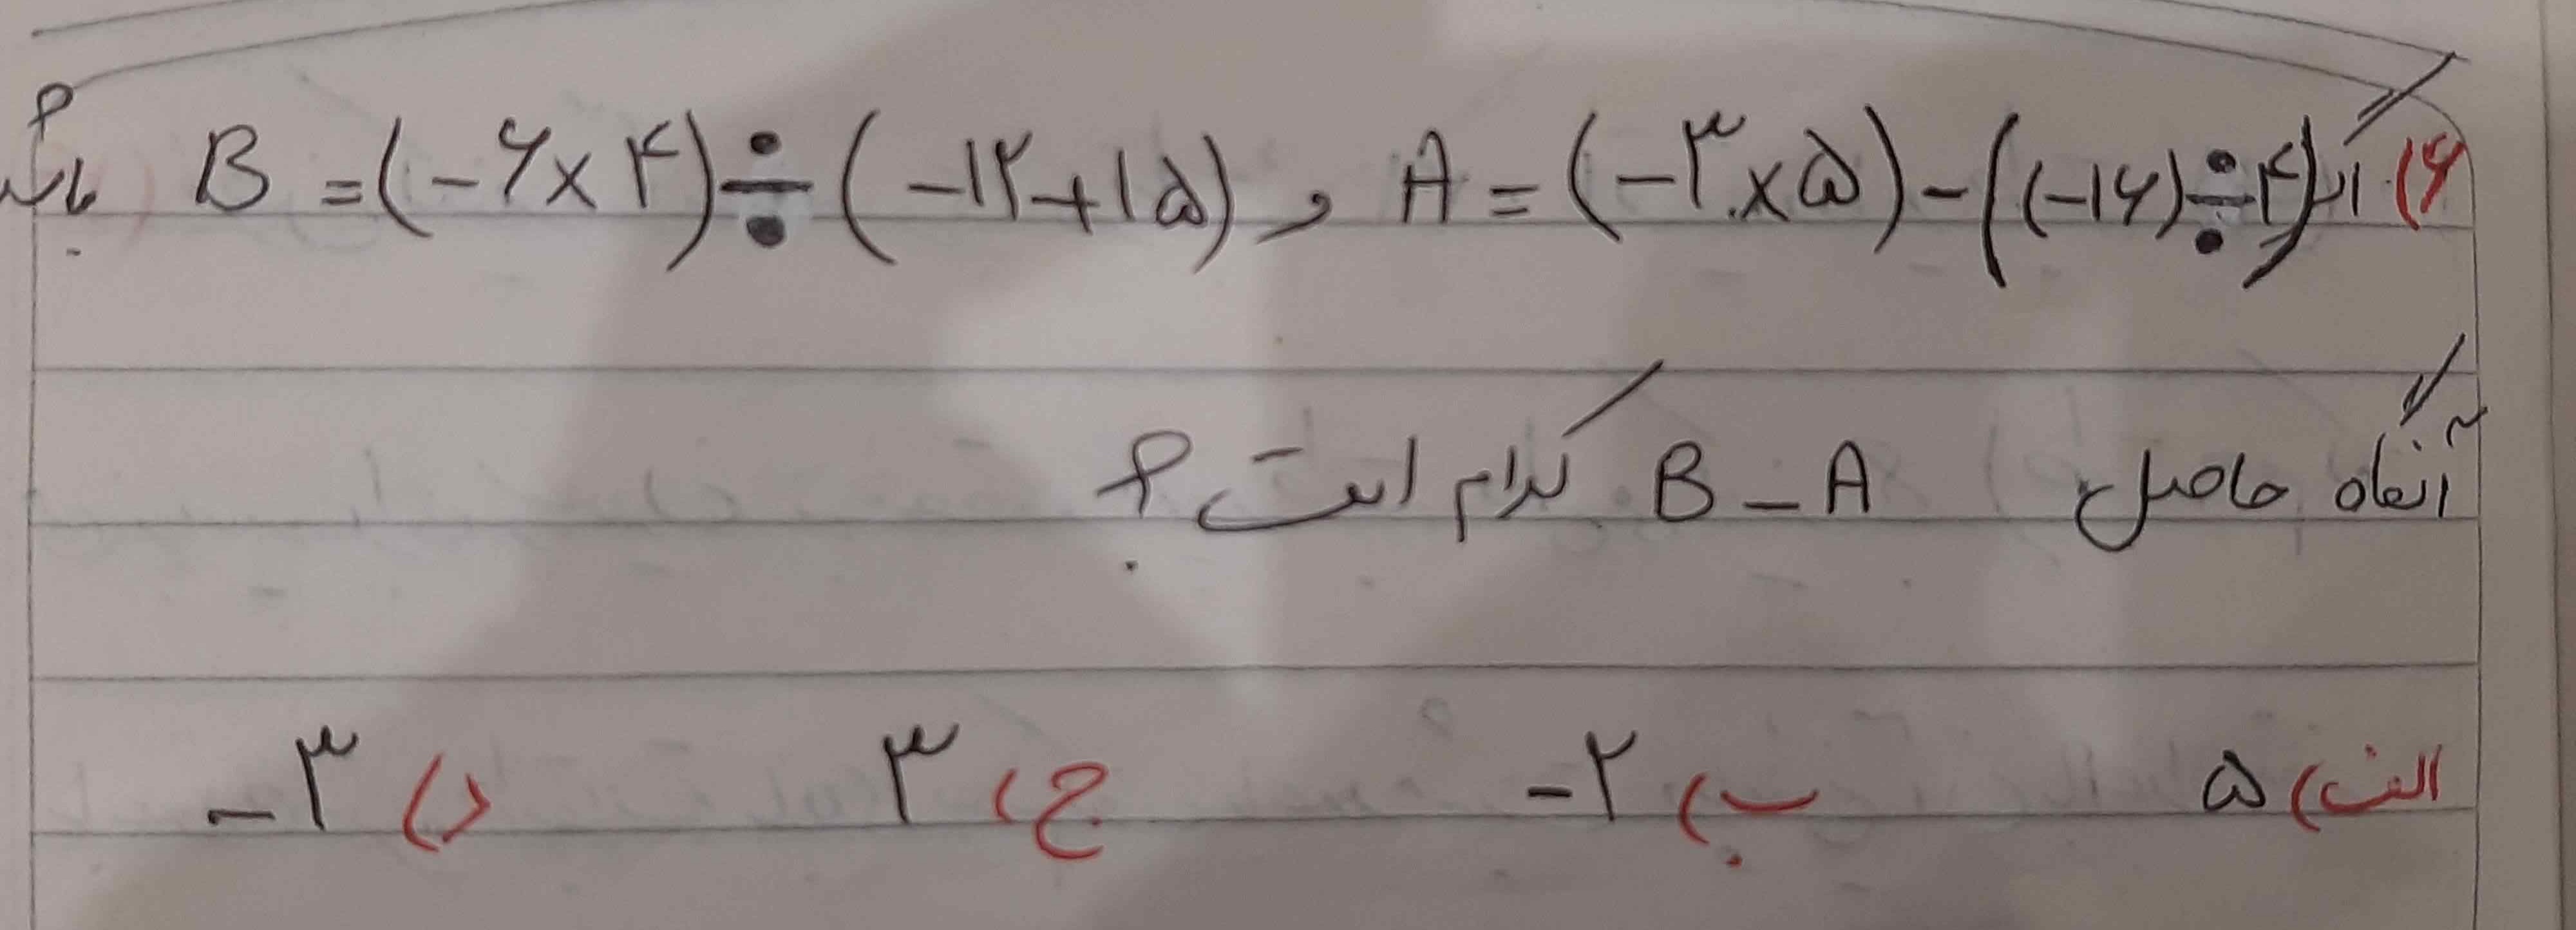 ۶) اگر A = (-۳×۵) - ((-۱۶)÷۴) و B = (-۶×۴) ÷ (-۱۲+۱۵) باشد؟
آنگاه حاصل B - A کدام است؟
الف) ۵ ب) -۲ ج) ۳ د) -۳